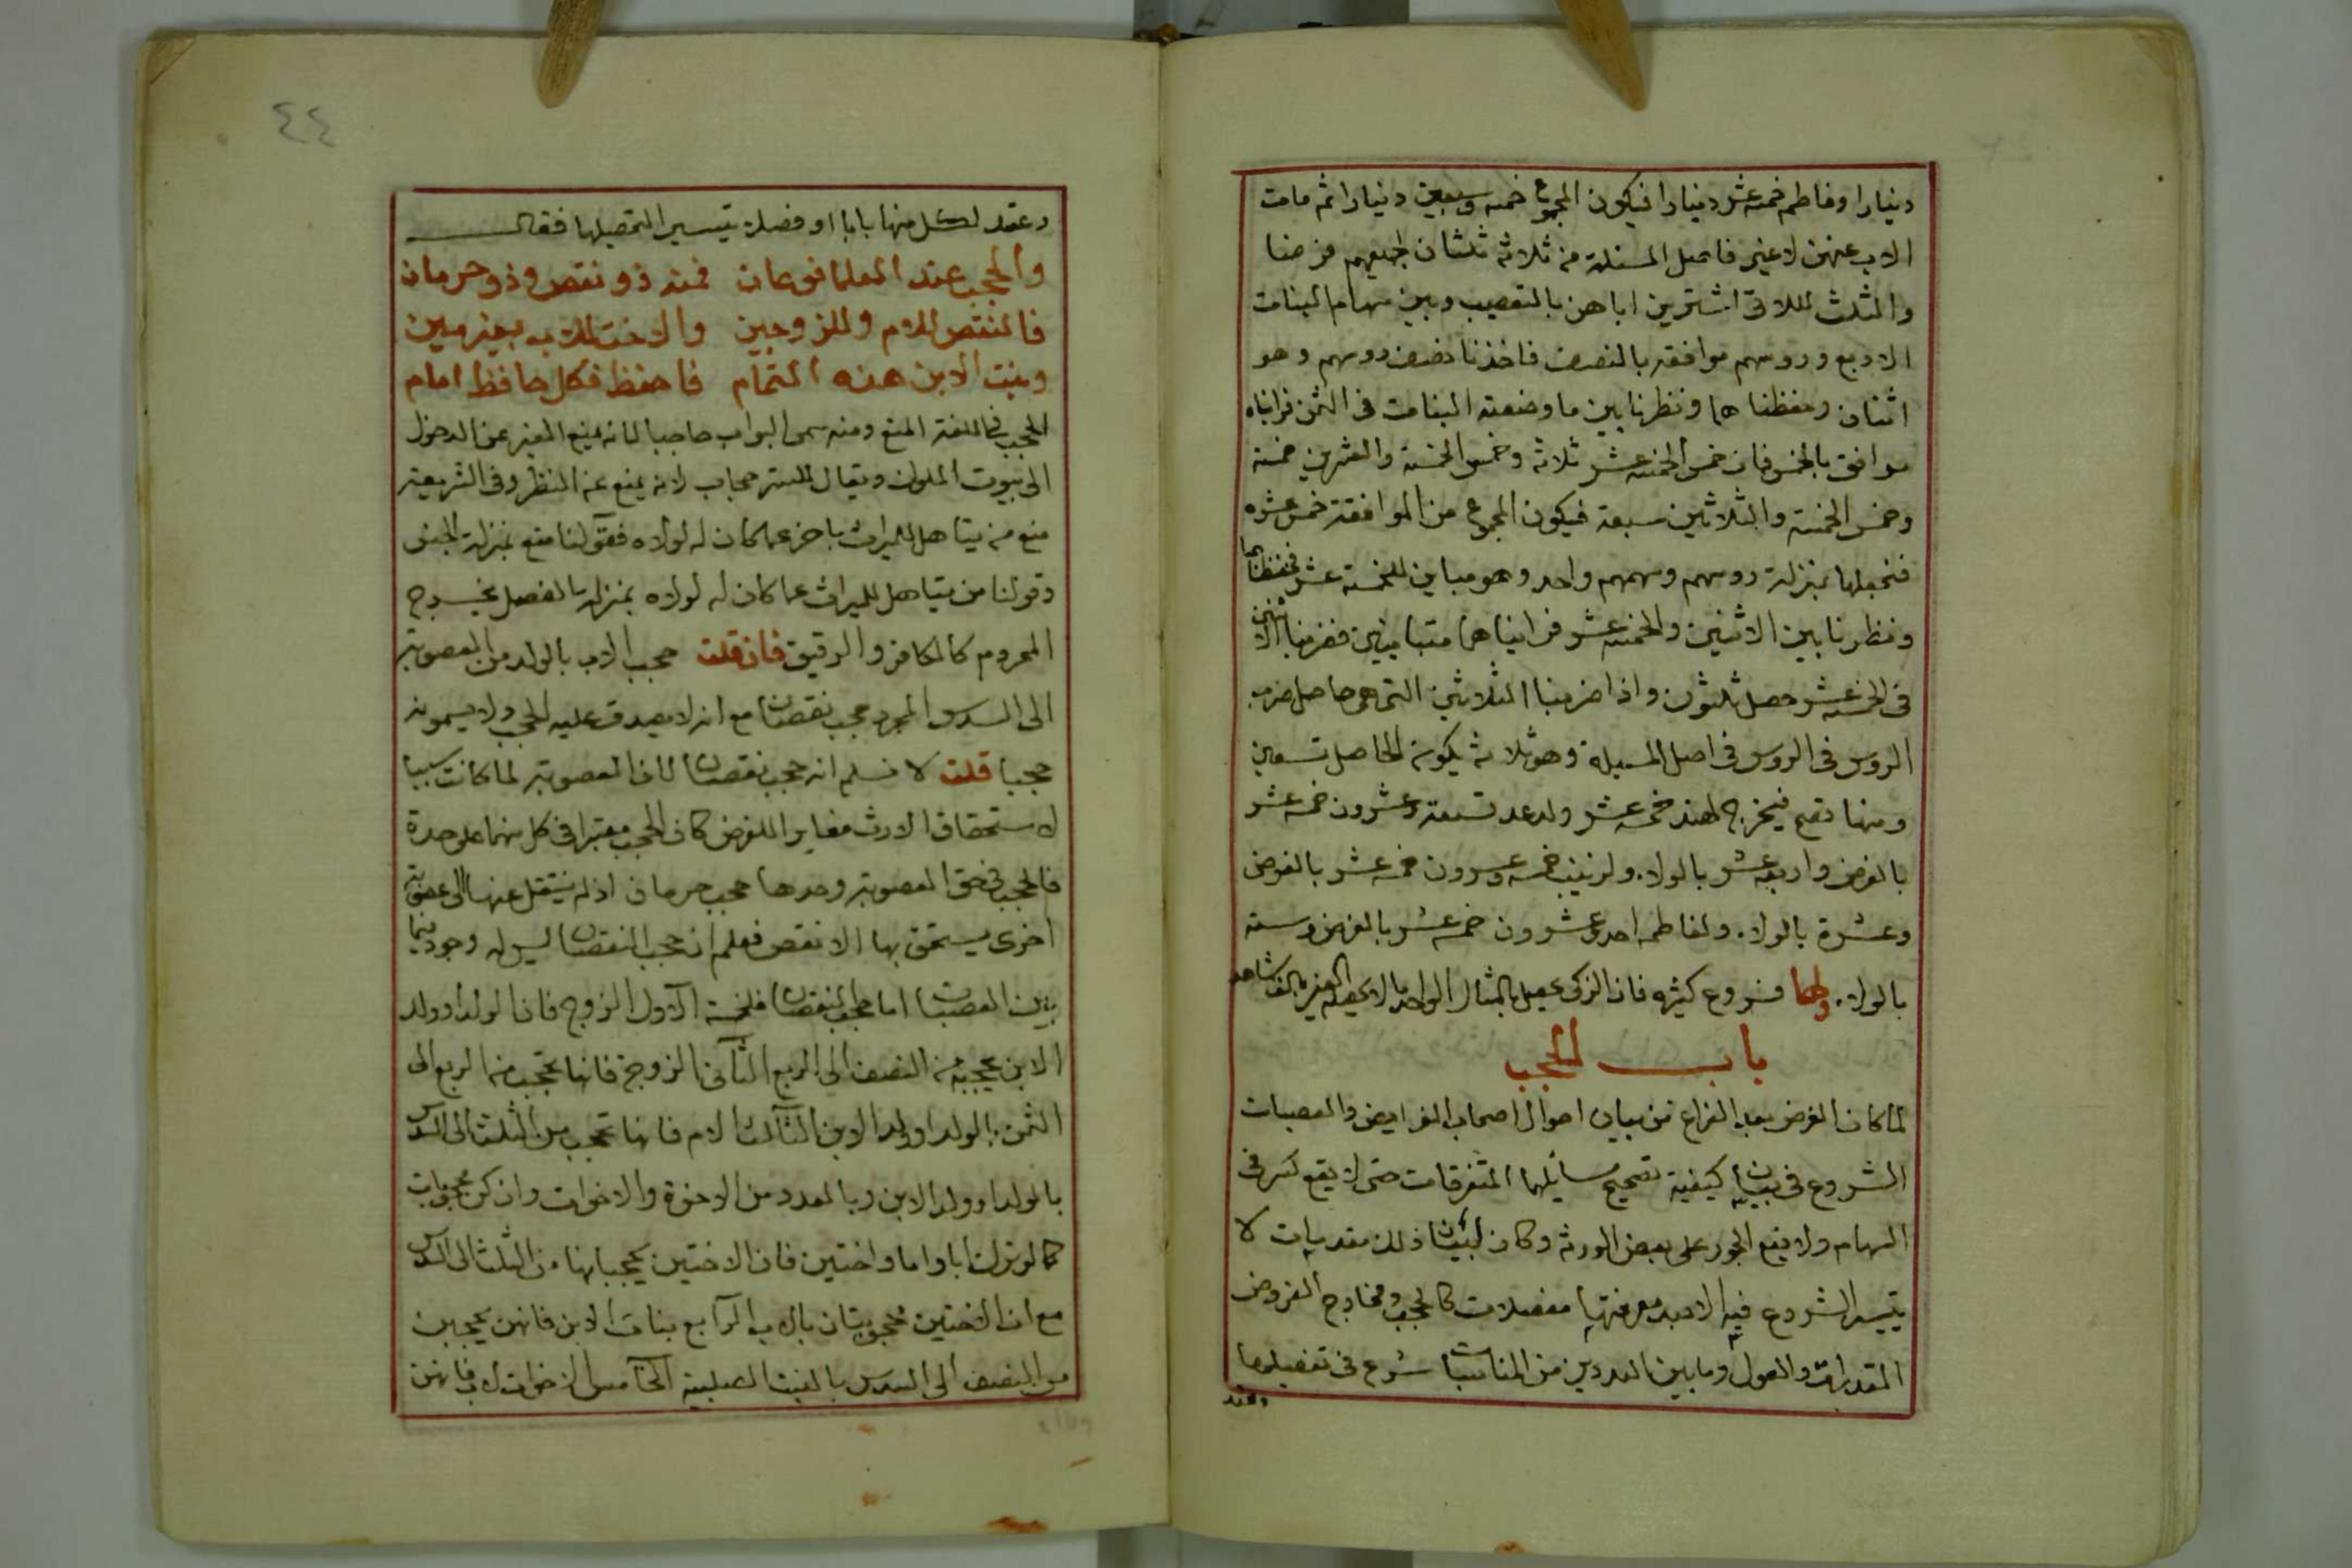 دينارا وفاطمه خمسة عشر دينارا فيكون المجموع خمسه وسبعين دينارا ثم مات
الاب عنهن لا غير فاصل المسئلة من ثلاثة ثلثان لجميعهم فرضا
والثلث للاتى اشترين اباهن بالتعصيب وبين سهام البنات
الاربع وروسهم موافقه بالنصف فاخذنا نصف روسهم وهو
اثنان وحفظنا هما ونظرنا بين ما وضعته البنات فى الثمن فرايناه
موافق بالخمس فان خمس الخمسه عشر ثلاثة وخمس الخمسة والعشرين خمسة
وخمس الخمسة والثلاثين سبعة فيكون المجموع من الموافقة خمس عشره
فنجعلها بمنزلة روسهم وسهمهم واحد وهو مباين للخمسة عشر فحفظناها
ونظرنا بين الاثنين والخمسه عشر فرايناهما متباينين فضربنا الاثنين
فى الخمسه عشر حصل ثلثون واذا ضربنا الثلاثين التى هى حاصل ضرب
الروس فى الروس فى اصل المسيلة وهو ثلاثه يكون الحاصل تسعين
ومنها تصح فيخرج لهند خمسه عشر ولدعد تسعة وعشرون خمسه عشر
بالفرض واربعه عشر بالولاء ولزينب خمسه وعشرون خمسه عشر بالفرض
وعشرة بالولاء ولفاطمه احد وعشرون خمسه عشر بالفرض وستة
بالولاء ولها فروع كثيره فان الزكى بالمثال الواحد ما لا الغير بالف شاهد
باب الحجب
لما كان الغرض بعد الفراغ من بيان احوال اصحاب الفرايض والعصبات
الشروع فى بيان كيفية تصحيح مسايلها المتفرقات حتى لا يقع كسر فى
السهام ولا يقع الجور على بعض الورثه وكان لبيان ذلك مقدمات لا
يتيسر الشروع فيه الا بعد معرفتها مفصلات كالحجب ومخارج الفروض
المقدرات والعول وما بين العددين من المناسبات شرع فى تفصيلها
وعقد
٤٤
وعقد لكل منها بابا او فصلا تيسيرا لتحصيلها فقال
والحجب عند العلما نوعان فمنه ذو نقص وذو حرمان
فالنقص للام وللزوجين والاخت للاب بغير مين
وبنت الابن هذه التمام فاحفظ فكل حافظ امام
الحجب فى اللغة المنع ومنه سمى البواب حاجبا لانه يمنع الغير عن الدخول
الى بيوت الملوك ويقال للستر حجاب لانه يمنع عن النظر وفى الشريعة
منع من يتاهل للميراث باخر عما كان له لولاه فقولنا منع بمنزلة الجنس
وقولنا من يتاهل للميراث عما كان له لولاه بمنزلة الفصل يخرج
المحروم كالكافر والرقيق فان قلت حجب الاب بالولد من العصوبة
الى السدس المجرد حجب نقصان مع انه لا يصدق عليه الحجب ولا يسمونه
حجبا قلت لا نسلم انه حجب نقصان لان العصوبة لما كانت سببا
لاستحقاق الارث مغايرا للفرض كان الحجب معتبرا فى كل منهما على حدة
فالحجب فى حق العصوبة وحدها حجب حرمان اذ لم ينتقل عنها الى عصوبة
اخرى يستحق بها الانقص فعلم ان حجب النقصان ليس له وجود فيما
بين العصبات اما حجب النقصان فلخمسة الاول الزوج فان الولد او ولد
الابن يحجبه من النصف الى الربع الثانى الزوجة فانها تحجب من الربع الى
الثمن بالولد او ولد الابن الثالث الام فانها تحجب من الثلث الى السدس
بالولد او ولد الابن وبالعدد من الاخوة والاخوات وان كن محجوبات
كما لو ترك ابا واما واختين فان الاختين يحجبانها من الثلث الى السدس
مع ان الاختين محجوبتان بالاب الرابع بنات الابن فانهن يحجبن
من النصف الى السدس بالبنت الصلبية الخامس الاخوات لاب فانهن